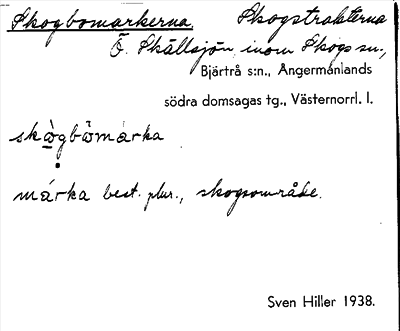 Skogbomarkerna Skogstrakterna
Ö. Skällsjön, inom Skogs sn.,
Bjärtrå s:n., Ångermanlands
södra domsagas tg., Västernorrl. l.
skògbömárka
márka best. plur., skogsområde.
Sven Hiller 1938.